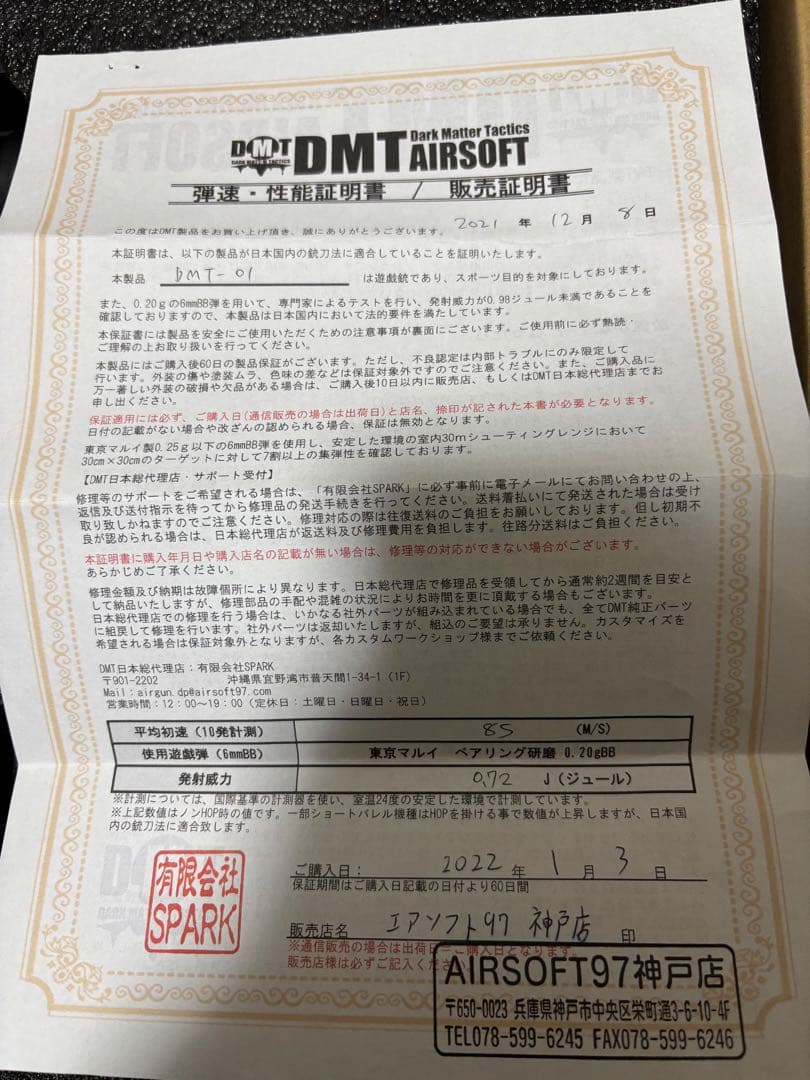 DMT
DARK MATTER TACTICS
DMT Dark Matter Tactics
AIRSOFT
弾速・性能証明書 / 販売証明書
この度はDMT製品をお買い上げ頂き、誠にありがとうございます。 2021 年 12 月 8 日
本証明書は、以下の製品が日本国内の銃刀法に適合していることを証明いたします。
本製品 DMT-01 は遊戯銃であり、スポーツ目的を対象にしております。
また、0.20gの6mmBB弾を用いて、専門家によるテストを行い、発射威力が0.98ジュール未満であることを
確認しておりますので、本製品は日本国内において法的要件を満たしています。
本保証書には製品を安全にご使用いただくための注意事項が裏面にございます。ご使用前に必ず熟読・
ご理解の上お取り扱いを行ってください。
本製品にはご購入後60日の製品保証がございます。ただし、不良認定は内部トラブルにのみ限定して
行います。外装の傷や塗装ムラ、色味の差などは保証対象外ですのでご注意ください。また、ご購入品に
万一著しい外装の破損や欠品がある場合は、ご購入後10日以内に販売店、もしくはDMT日本総代理店までお
申し出ください。
保証適用には必ず、ご購入日(通信販売の場合は出荷日)と店名、捺印が記された本書が必要となります。
日付の記載がない場合や改ざんの認められる場合、保証は無効となります。
東京マルイ製0.25g以下の6mmBB弾を使用し、安定した環境の室内30mシューティングレンジにおいて
30cm×30cmのターゲットに対して7割以上の集弾性を確認しております。
【DMT日本総代理店・サポート受付】
修理等のサポートをご希望される場合は、「有限会社SPARK」に必ず事前に電子メールにてお問い合わせの上、
返信及び送付指示を待ってから修理品の発送手続きを行ってください。送料着払いにて発送された場合は受け
取り致しかねますのでご注意ください。修理対応の際は往復送料のご負担をお願いしております。但し初期不
良が認められる場合は、日本総代理店が返送料及び修理費用を負担します。往路分送料はご負担ください。
本証明書に購入年月日や購入店名の記載が無い場合は、修理等の対応ができない場合がございます。
あらかじめご了承ください。
修理金額及び納期は故障個所により異なります。日本総代理店で修理品を受領してから通常約2週間を目安と
して納品いたしますが、修理部品の手配や混雑の状況によりお時間を更に頂戴する場合もございます。
日本総代理店での修理を行う場合は、いかなる社外パーツが組み込まれている場合でも、全てDMT純正パーツ
に組戻して修理を行います。社外パーツは返却いたしますが、組込のご要望は承りません。カスタマイズを
希望される場合は保証対象外となりますが、各カスタムワークショップ様までご依頼ください。
DMT日本総代理店：有限会社SPARK
〒901-2202 沖縄県宜野湾市普天間1-34-1 (1F)
Mail：airgun.dp@airsoft97.com
営業時間：12:00～19:00（定休日：土曜日・日曜日・祝日）
平均初速（10発計測） 85 (M/S)
使用遊戯弾（6mmBB） 東京マルイ ベアリング研磨 0.20gBB
発射威力 0.72 J（ジュール）
※計測については、国際基準の計測器を使い、室温24度の安定した環境で計測しています。
※上記数値はノンHOP時の値です。一部ショートバレル機種はHOPを掛ける事で数値が上昇しますが、日本国
内の銃刀法に適合致します。
有限会社
SPARK
ご購入日： 2022 年 1 月 3 日
保証期間はご購入日記載の日付より60日間
販売店名 エアソフト97 神戸店 印
※通信販売の場合は出荷日＝ご購入日となります。
販売店様は必ずご記入ください。
AIRSOFT97神戸店
〒650-0023 兵庫県神戸市中央区栄町通3-6-10-4F
TEL078-599-6245 FAX078-599-6246